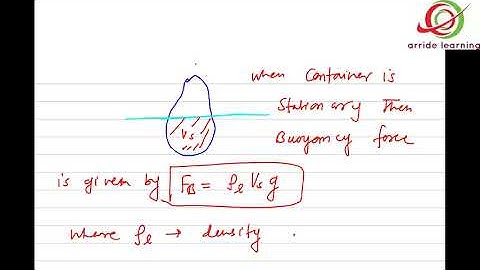 arride learning
when Container is
Stationary then
Buoyancy force
Vs
is given by F_B = ρ_l V_s g
where ρ_l → density